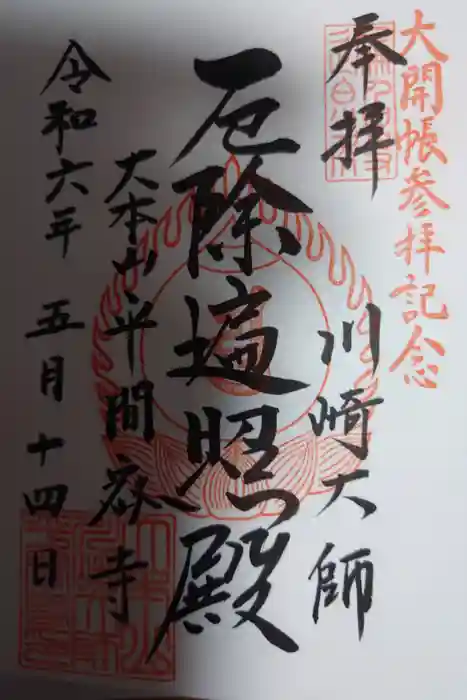 大開帳参拝記念
奉拝
川崎大師
厄除遍照殿
大本山平間寺
令和六年 五月十四日